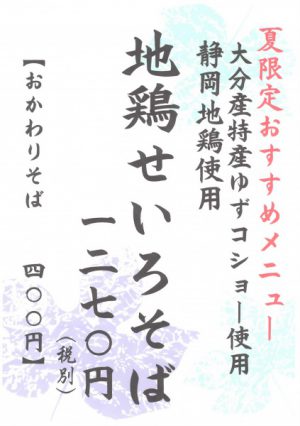 夏限定おすすめメニュー
大分産特産ゆずコショー使用
静岡地鶏使用
地鶏せいろそば
一二七〇円
(税別)
【おかわりそば 四〇〇円】